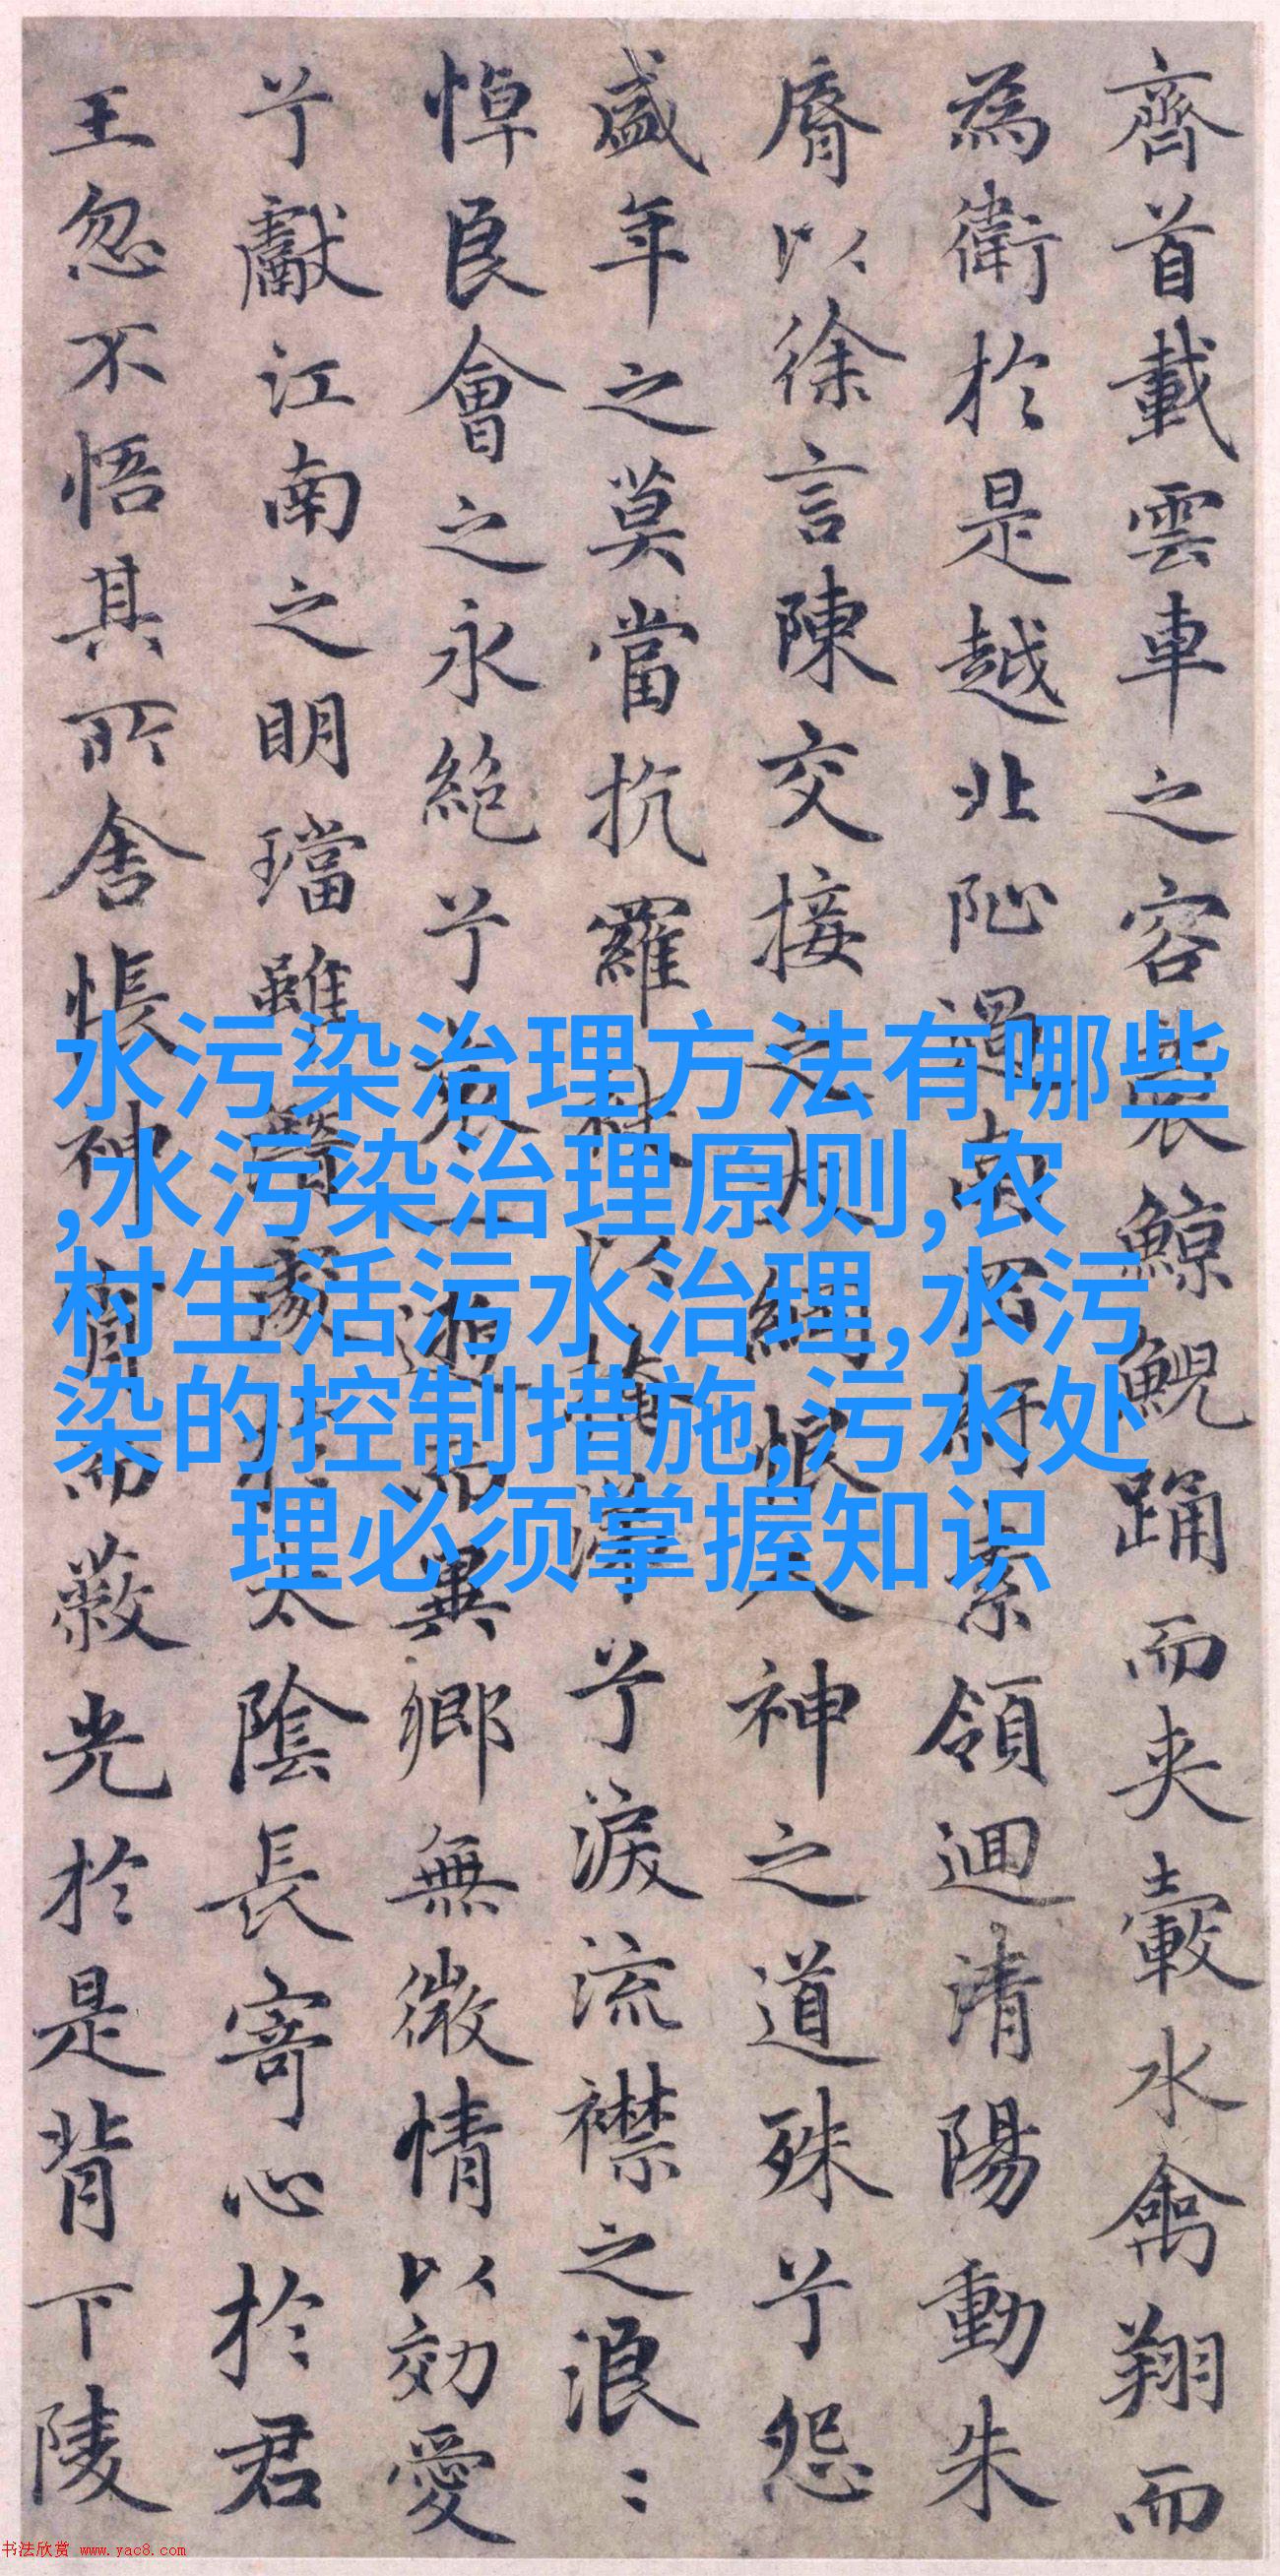 齊首載雲車之容裔鯨鯢踊而夾轂水禽翔而
為衛於是越北阯過南岡紆素領迴清陽動朱
脣以徐言陳交接之大綱恨人神之道殊兮怨
盛年之莫當抗羅袂以掩涕兮淚流襟之浪〻
悼良會之永絕兮哀一逝而異鄉無微情以効愛
兮獻江南之明璫雖潛處於太陰長寄心於君
王忽不悟其所舍悵神宵而蔽光於是背下陵
水污染治理方法有哪些
,水污染治理原则,农
村生活污水治理,水污
染的控制措施,污水处
理必须掌握知识
书法欣赏 www.yac8.com